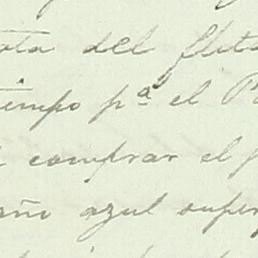 ota del flita
iempo pª el P
comprar el p
año azul super